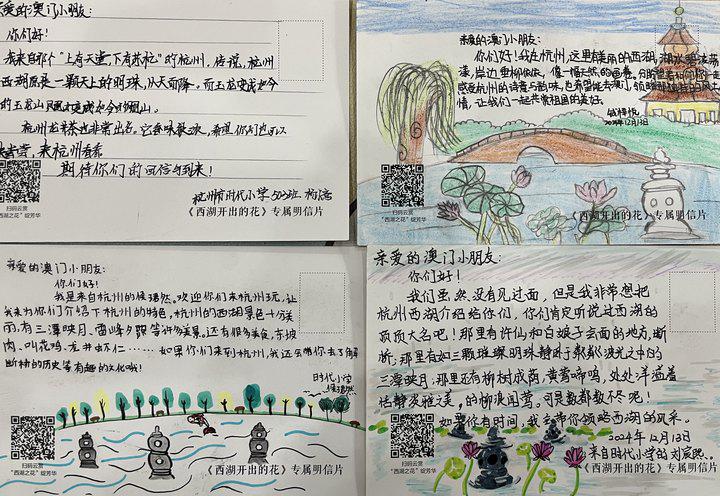 亲爱的澳门小朋友:
你们好!
我来自那个“上有天堂,下有苏杭”的杭州。传说,杭州
西湖原是一颗天上的明珠,从天而降。而玉龙变成如今
的玉龙山,凤凰变成如今的凤凰山。
杭州龙井茶也非常出名。它香味甚浓,希望你们也可以
来杭州看看
期待你们的回信与到来!
杭州市时代小学503班
扫码云赏
“西湖之花”绽芳华
《西湖开出的花》专属明信片
亲爱的澳门小朋友:
你们好!我在杭州,这里有美丽的西湖,湖水碧波荡
漾,岸边垂柳依依,像一幅天然的画卷。
感受杭州的诗意与韵味,也希望能去澳门,领略那里独特的风土人
情,让我们一起共赏祖国的美好。
2024年12月13日
扫码云赏
“西湖之花”绽芳华
《西湖开出的花》专属明信片
亲爱的澳门小朋友:
你们好!
我是来自杭州的侯璟然。欢迎你们来杭州玩,让
我来为你们介绍下杭州的特色。杭州的西湖景色十分美
丽,有三潭映月、雷峰夕照等许多美景。还有很多美食,东坡
肉、叫花鸡、龙井虾仁……如果你们来到杭州,我还会带你去了解
断桥的历史等有趣的文化哦!
时代小学
侯璟然
扫码云赏
“西湖之花”绽芳华
《西湖开出的花》专属明信片
亲爱的澳门小朋友:
你们好!
我们虽然没有见过面,但是我非常想把
杭州西湖介绍给你们,你们肯定听说过西湖的
鼎鼎大名吧!那里有许仙和白娘子会面的地点,断
桥;那里有如三颗璀璨明珠静卧于粼粼波光之中的
三潭映月;那里还有柳树成荫,黄莺啼鸣,处处洋溢着
恬静淡雅之美的柳浪闻莺。可是数都数不尽呢!
如果你有时间,我会带你领略西湖的风采。
2024年12月13日
来自时代小学的刘宸熙
扫码云赏
“西湖之花”绽芳华
《西湖开出的花》专属明信片